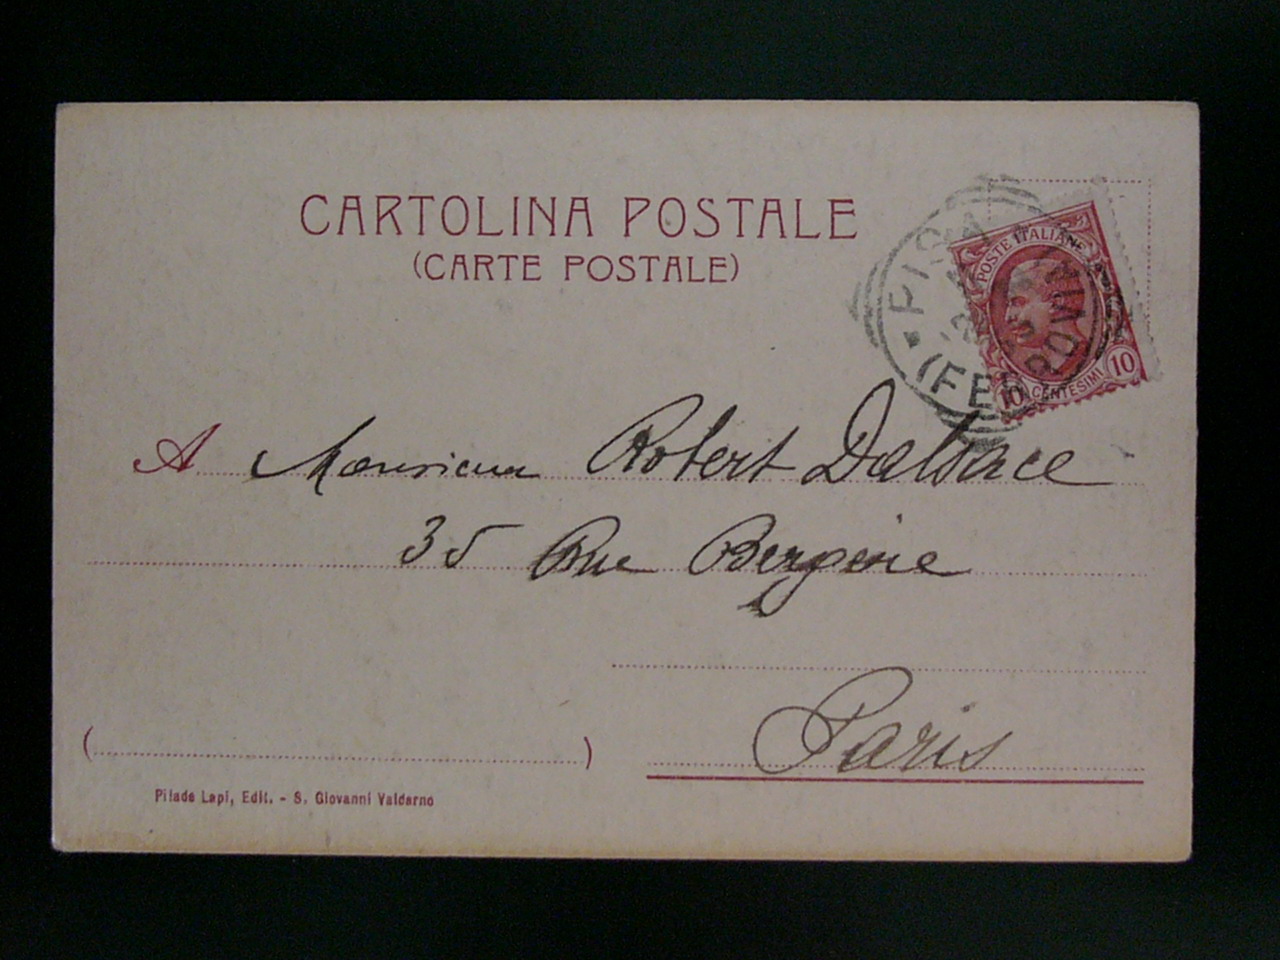 CARTOLINA POSTALE
(CARTE POSTALE)
PISA
(FERROVIA)
POSTE ITALIANE
10 CENTESIMI 10
A Monsieur Robert Dalsace
35 Rue Bergère
Paris
Pilade Lapi, Edit. - S. Giovanni Valdarno